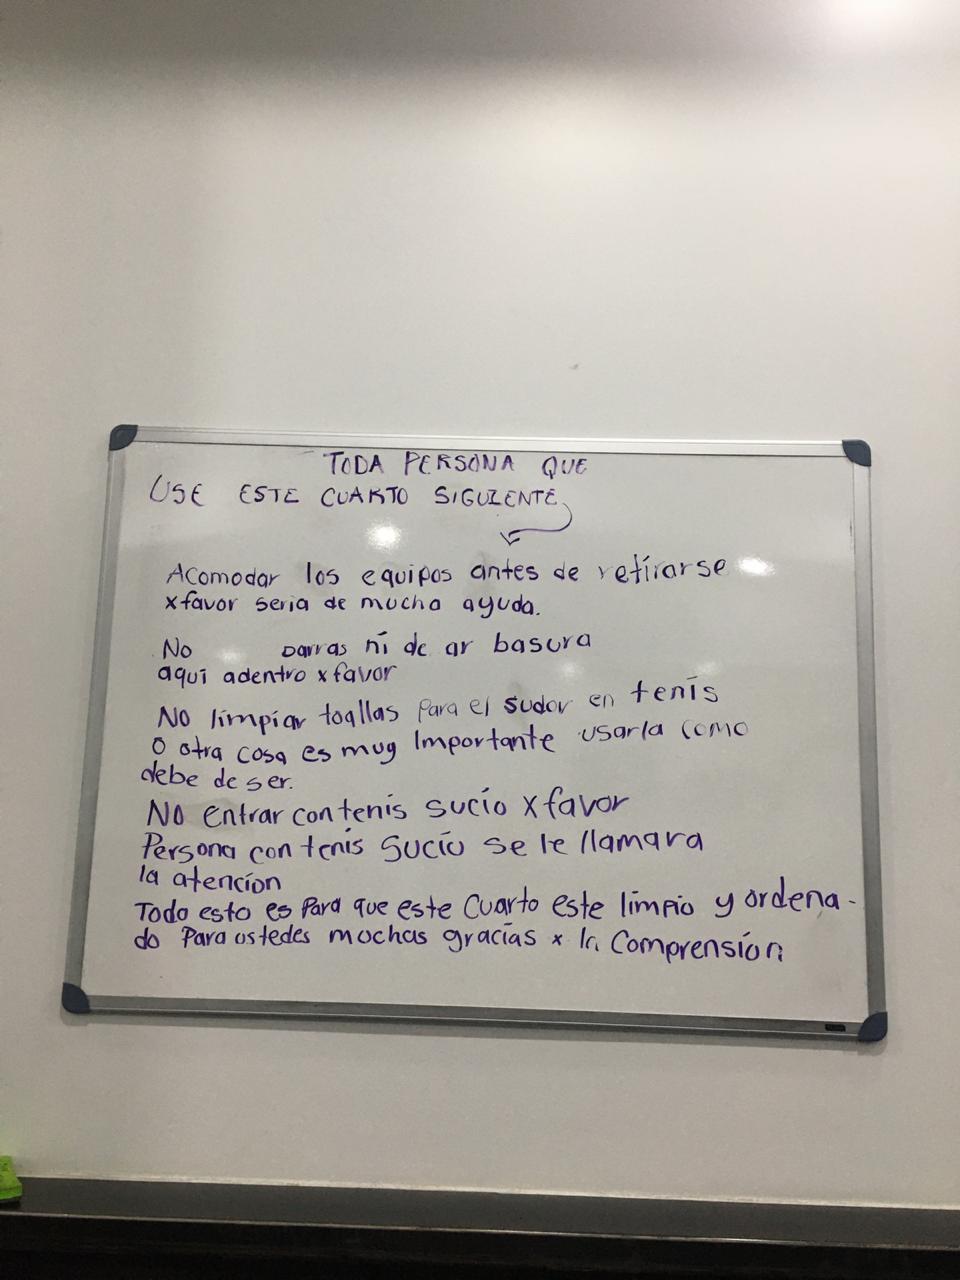 TODA PERSONA QUE
USE ESTE CUARTO SIGUIENTE
Acomodar los equipos antes de retirarse
xfavor seria de mucha ayuda.
No ni de ar basura
aqui adentro xfavor
No limpiar toallas para el sudor en tenis
o otra cosa es muy Importante usarla como
debe de ser.
No entrar con tenis sucio xfavor
Persona con tenis sucio se le llamara
la atencion
Todo esto es Para que este Cuarto este limpio y ordena-
do Para ustedes muchas gracias x la Comprension